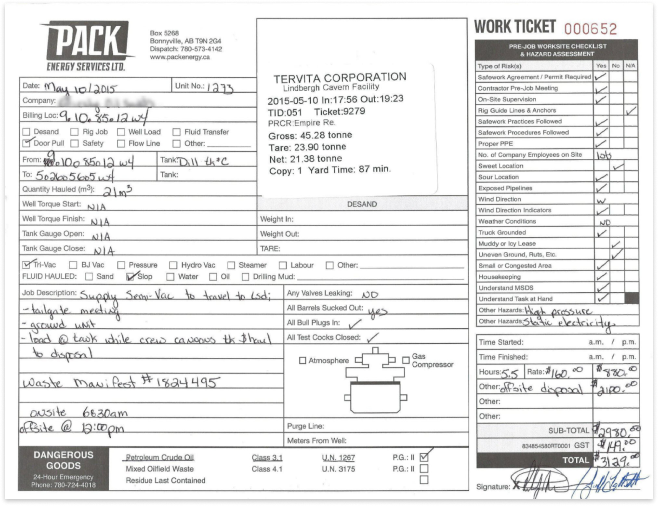 PACK
ENERGY SERVICES LTD.
Box 5268
Bonnyville, AB T9N 2G4
Dispatch: 780-573-4142
www.packenergy.ca
WORK TICKET 000652
Date: May 10/2015 Unit No.: 1273
Company:
Billing Loc: 9.10.85.12 w4
Desand Rig Job Well Load Fluid Transfer
Door Pull Safety Flow Line Other:
From: 10.085.012 w4 Tank:
To: Tank:
Quantity Hauled (m³): 21m³
Well Torque Start: N/A
Well Torque Finish: N/A
Tank Gauge Open: N/A
Tank Gauge Close: N/A
TERVITA CORPORATION
Lindbergh Cavern Facility
2015-05-10 In:17:56 Out:19:23
TID:051 Ticket:9279
PRCR:Empire Re.
Gross: 45.28 tonne
Tare: 23.90 tonne
Net: 21.38 tonne
Copy: 1 Yard Time: 87 min.
DESAND
Weight In:
Weight Out:
TARE:
Tri-Vac BJ Vac Pressure Hydro Vac Steamer Labour Other:
FLUID HAULED: Sand Slop Water Oil Drilling Mud:
Job Description: Supply Semi-Vac to travel to Lsd;
- tailgate meeting
- ground unit
- load @ tank while crew canons tk & haul
to disposal
Waste Manifest # 1824495
onsite 6:30am
offsite @ 12:00pm
Any Valves Leaking: NO
All Barrels Sucked Out: yes
All Bull Plugs In: ✓
All Test Cocks Closed: ✓
Atmosphere Gas Compressor
Purge Line:
Meters From Well:
DANGEROUS GOODS
24-Hour Emergency
Phone: 780-724-4018
Petroleum Crude Oil Class 3.1 U.N. 1267 P.G.: II ✓
Mixed Oilfield Waste Class 4.1 U.N. 3175 P.G.: II
Residue Last Contained
PRE-JOB WORKSITE CHECKLIST
& HAZARD ASSESSMENT
Type of Risk(s) Yes No N/A
Safework Agreement / Permit Required ✓
Contractor Pre-Job Meeting ✓
On-Site Supervision ✓
Rig Guide Lines & Anchors ✓
Safework Practices Followed ✓
Safework Procedures Followed ✓
Proper PPE ✓
No. of Company Employees on Site
Sweet Location ✓
Sour Location ✓
Exposed Pipelines ✓
Wind Direction W
Wind Direction Indicators ✓
Weather Conditions
Truck Grounded ✓
Muddy or Icy Lease ✓
Uneven Ground, Ruts, Etc. ✓
Small or Congested Area ✓
Housekeeping ✓
Understand MSDS ✓
Understand Task at Hand ✓
Other Hazards: High pressure
Other Hazards: Static electricity
Time Started: a.m. / p.m.
Time Finished: a.m. / p.m.
Hours: 5.5 Rate: $160.00 $880.00
Other: offsite disposal $2100.00
Other:
Other:
SUB-TOTAL $2980.00
834854580RT0001 GST $149.00
TOTAL $3129.00
Signature: